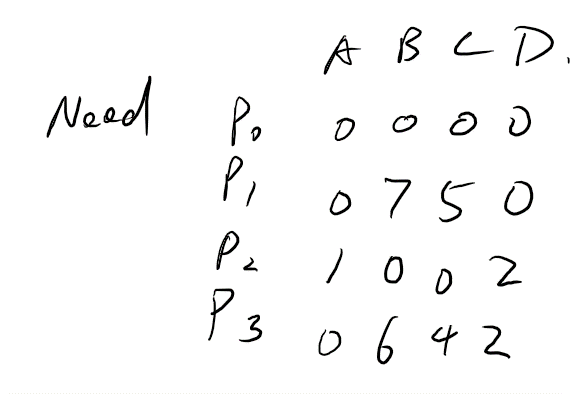 A B C D.
Need P₀ 0 0 0 0
P₁ 0 7 5 0
P₂ 1 0 0 2
P₃ 0 6 4 2